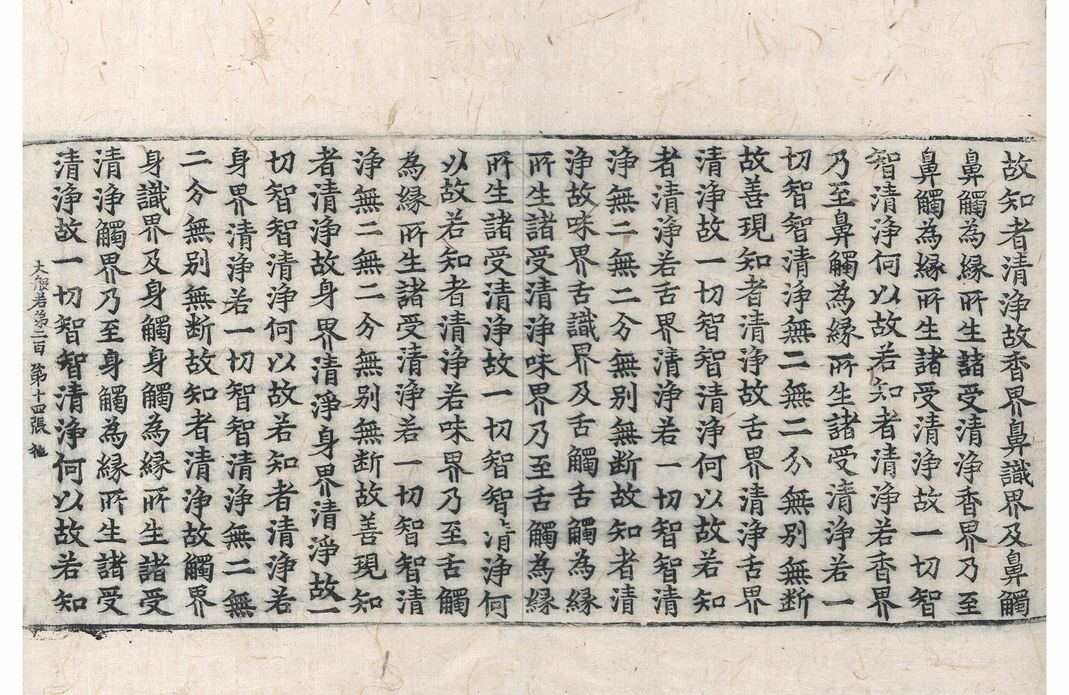 故知者清浄故香界鼻識界及鼻觸
鼻觸為縁所生諸受清浄香界乃至
鼻觸為縁所生諸受清浄故一切智
智清浄何以故若知者清浄若香界
乃至鼻觸為縁所生諸受清浄若一
切智智清浄無二無二分無别無断
故善現知者清浄故舌界清浄舌界
清浄故一切智智清浄何以故若知
者清浄若舌界清浄若一切智智清
浄無二無二分無别無断故知者清
浄故味界舌識界及舌觸舌觸為縁
所生諸受清浄味界乃至舌觸為縁
所生諸受清浄故一切智智清浄何
以故若知者清浄若味界乃至舌觸
為縁所生諸受清浄若一切智智清
浄無二無二分無别無断故善現知
者清浄故身界清淨身界清淨故一
切智智清浄何以故若知者清浄若
身界清浄若一切智智清浄無二無
二分無别無断故知者清浄故觸界
身識界及身觸身觸為縁所生諸受
清浄觸界乃至身觸為縁所生諸受
清浄故一切智智清浄何以故若知
大般若第二百 第十四張